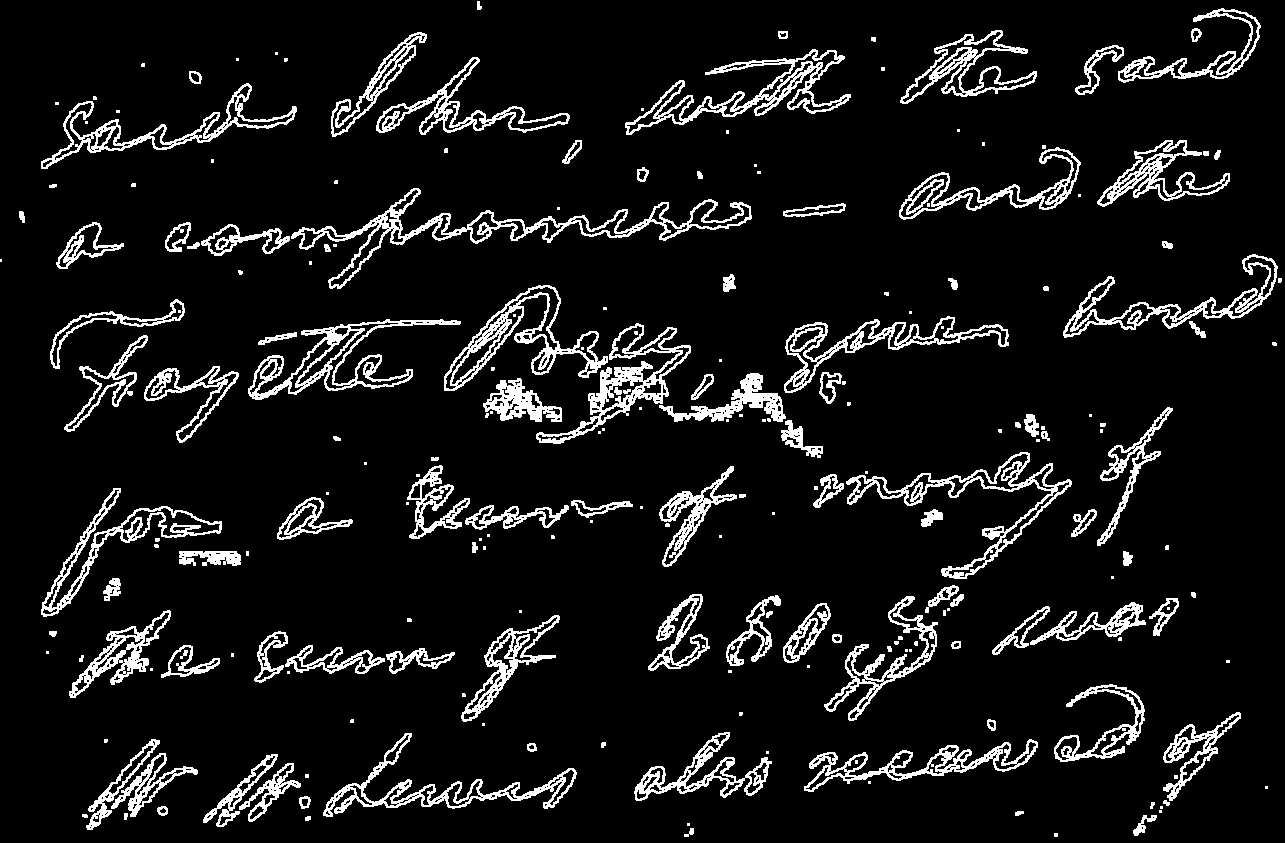 said John, with the said
a compromise — and the
Fayette Bree, given bond
for a sum of money, of
the sum of 250. $. was
W. W. Lewis also received of